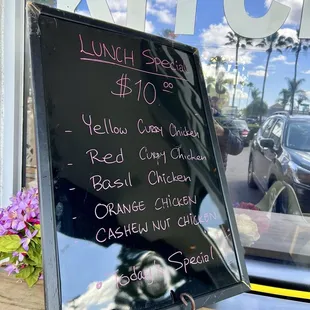 KITCHEN
LUNCH Special
$10.00
- Yellow Curry Chicken
- Red Curry Chicken
- Basil Chicken
- ORANGE CHICKEN
- CASHEW NUT CHICKEN
- Today's Special